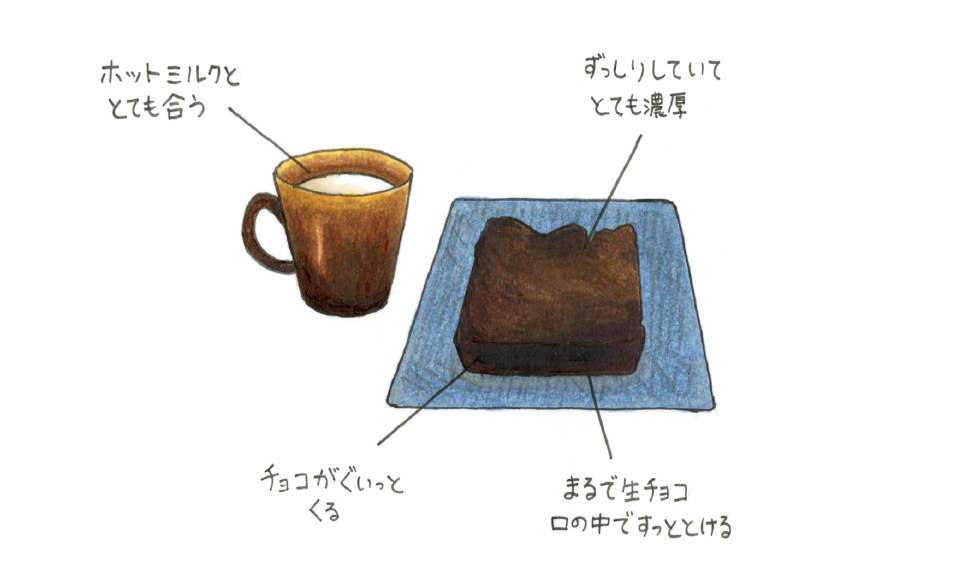 ホットミルクと
とても合う
ずっしりしていて
とても濃厚
チョコがぐいっと
くる
まるで生チョコ
口の中ですっととける